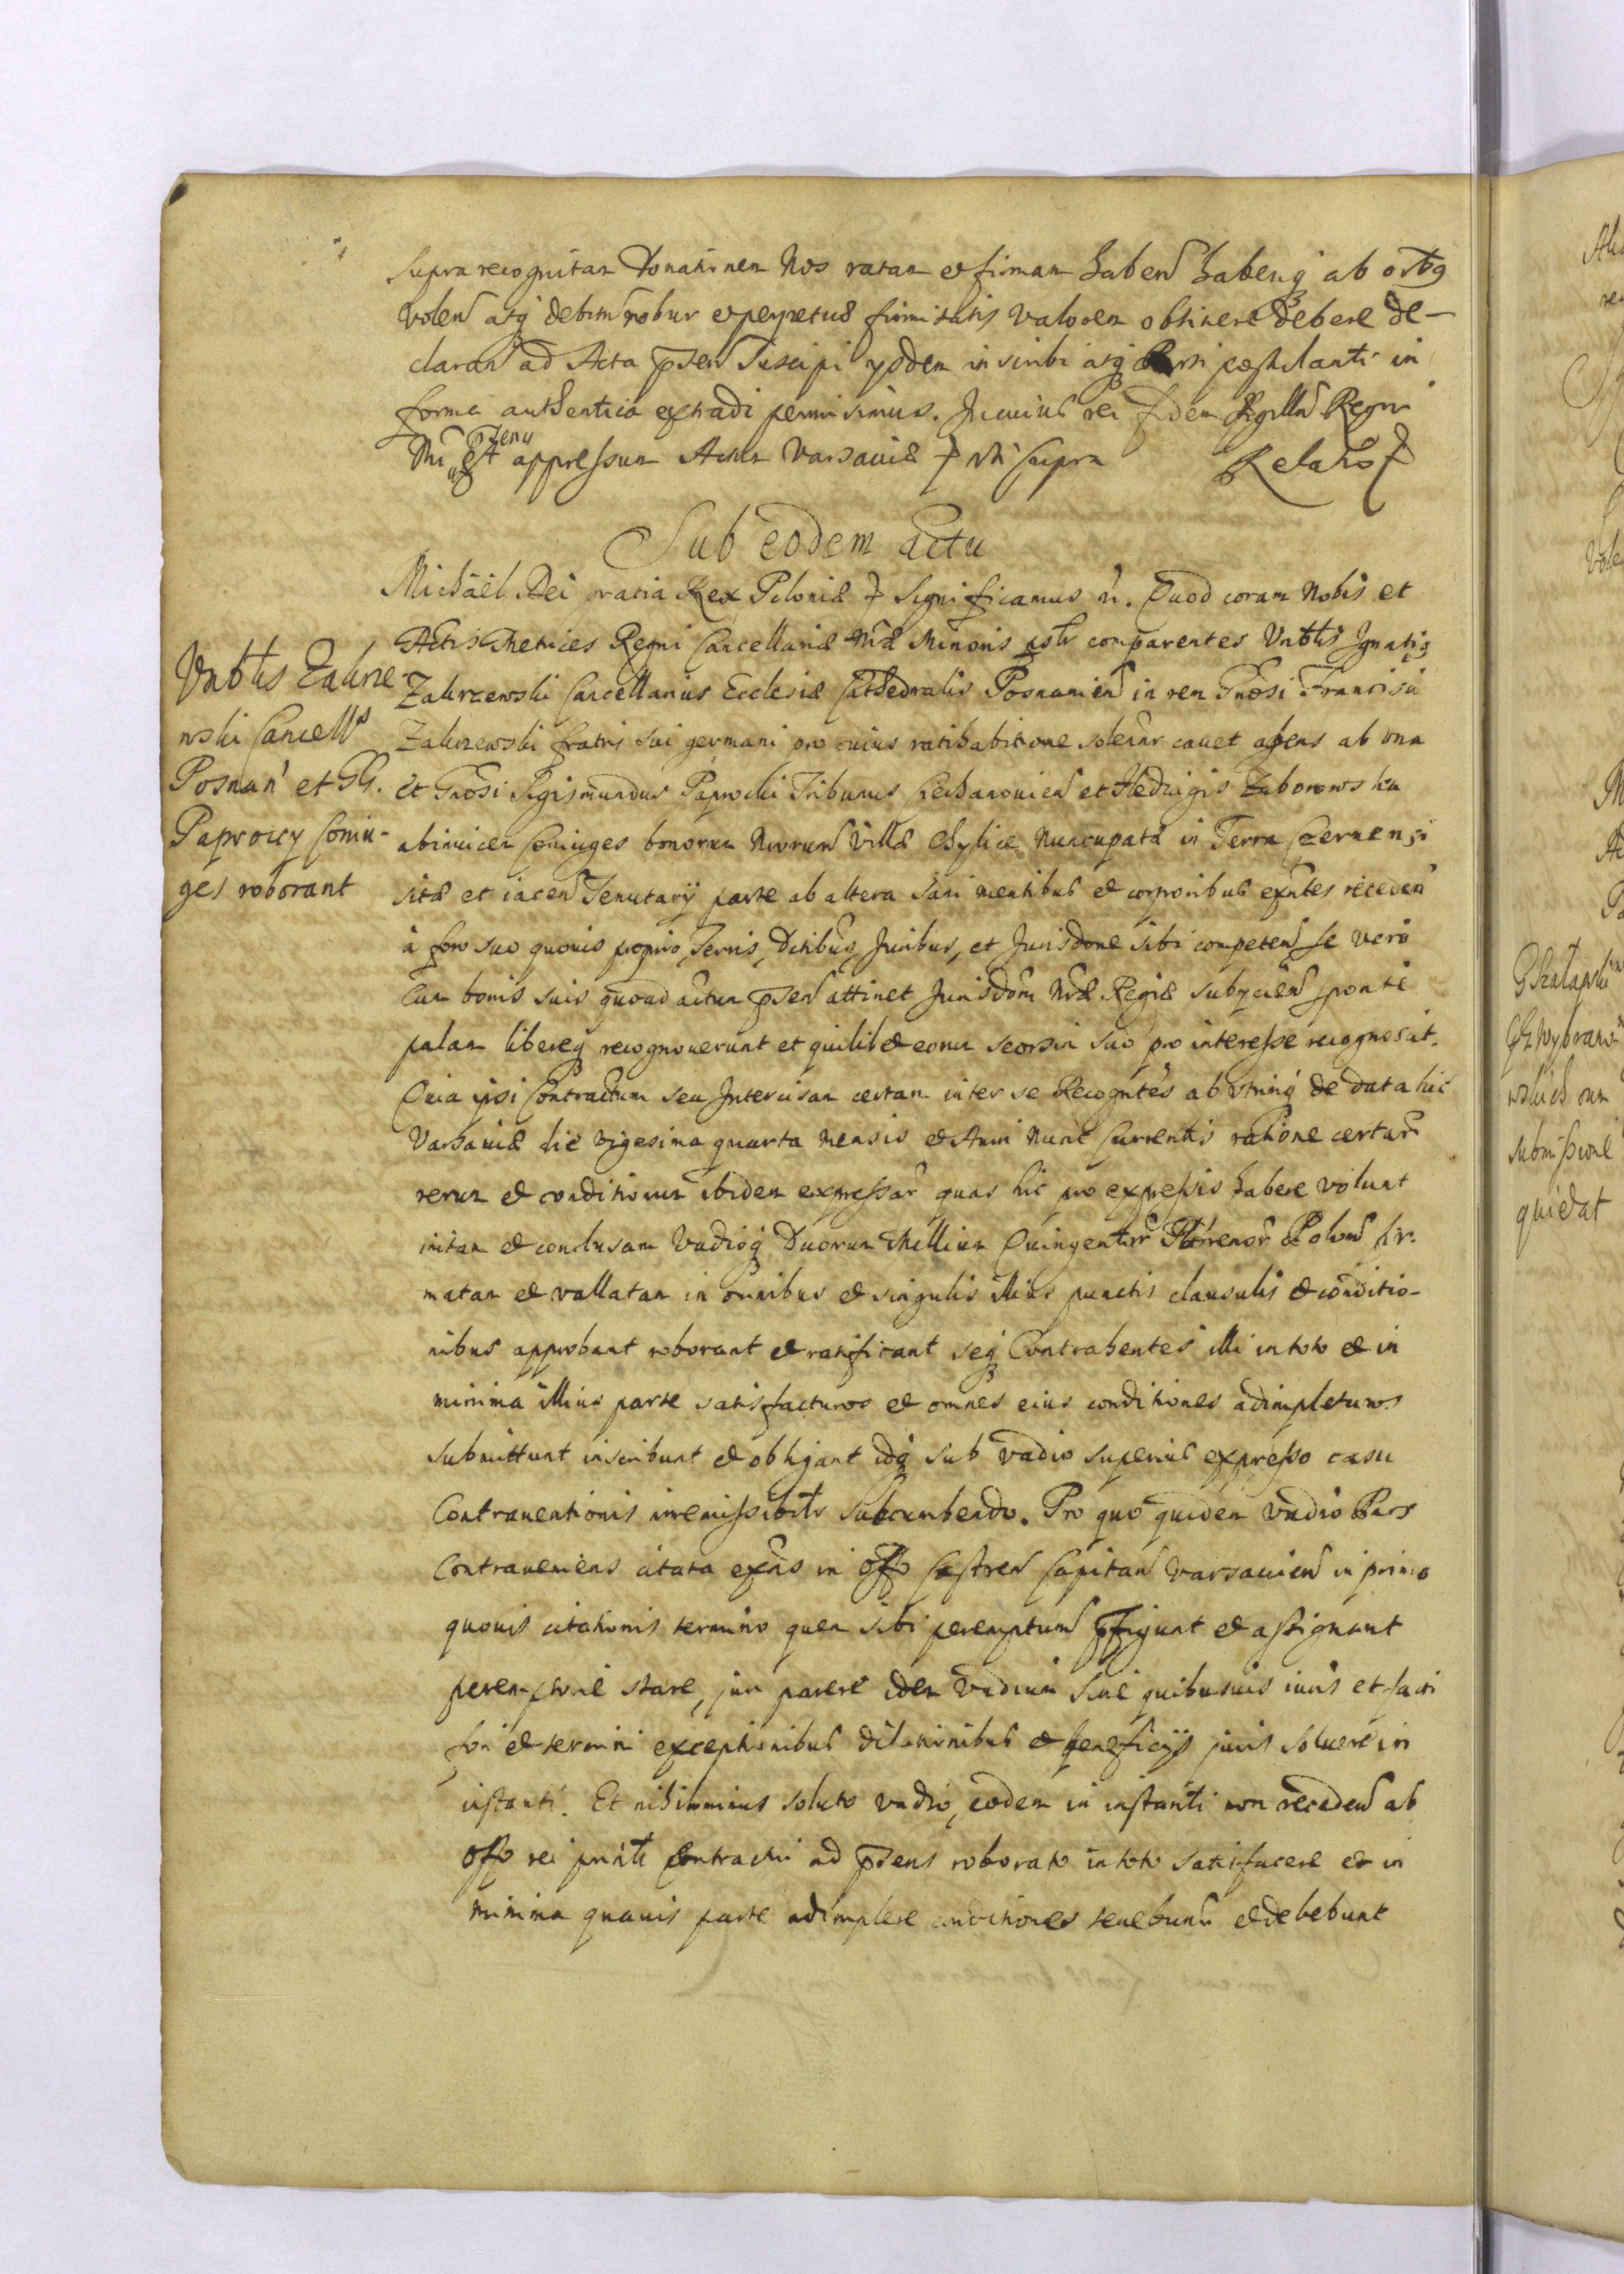 supra recognitam Donationem Nos ratam et firmam haben̄ haberiq; ab oībq
volen̄ atq; debitū robur et perpetuæ firmitatis valorem obtinere debere de-
claran̄ ad Acta p̄sen̄ suscipi ijsdem inscribi atq; Parti postulanti in
forma authentica extradi permisimus. In cuius rei fidem Sigillū Regni
Nr̄i p̄sentq
est appressum Actum Varsaviæ ut supra Relatio
Sub eodem actu
Michaël Dei gratia Rex Poloniæ Significamus n̄. Quod coram Nobis et
Actis Metrices Regni Cancellariæ Nr̄æ Minoris p̄sltr comparentes Vnblis Ignatiq
Zakrzewski Cancellarius Ecclesiæ Cathedralis Posnanien̄ in rem Gn̄osi Francisci
Zakrzewski fratris sui germani pro cuius ratihabitione solēnr cavet agens ab una
et Gn̄osi Sigismundus Paprocki Tribunus Ciechanovien̄ et Hedvigis Zaborowska
abinvicem Coniuges bonorum Nrorum̄ Villæ Chylice Nuncupatæ in Terra Czernensi
sitæ et iacen̄ Tenutarij parte ab altera sani mentibus et corporibus exn̄tes receden̄
à foro suo quovis proprio, Terris, Ditibus, Iuribus, et Jurisdone sibi competen̄ se vero
cum bonis suis quoad actum p̄sen̄ attinet Jurisdōni Nr̄æ Regiæ subijcien̄ sponte
palam libereq; recognoverunt et quilibet eorum seorsim suo pro interesse recognoscit.
Quia ipsi Contractum seu Intercisam certam inter se Recogntēs ab utrinq; de data hic
Varsaviæ die vigesima quarta mensis et Anni nunc currentis ratione certar̄
rerum et conditionum ibidem expressar̄ quas hic pro expressis habere volunt
initam et conclusam Vadioq; Duorum Millium Quingentor̄ Florenor̄ Polon̄ fir-
matam et vallatam in omnibus et singulis illius punctis clausulis et conditio-
nibus approbant roborant et ratificant seq; Contrahentes illi in toto et in
minima illius parte satisfacturos et omnes eius conditiones adimpleturos
submittunt inscribunt et obligant idq; sub vadio superius expresso casu
Contraventionis irremissibltr succumbendo. Pro quo quidem vadio Pars
Contraveniens citata exn̄s in Offo Castren̄ Capitan̄ Varsavien̄ in primo
quovis citationis termino quem sibi peremptum̄ p̄figunt et assignant
peremptorie stare, juri parere idem vadium sine quibusuis iuris et facti
fori et termini exceptionibus dilationibus et beneficijs juris solvere in
instanti. Et nihilominus soluto vadio, eodem in instanti non receden̄ ab
Offo rei p̄ntī Contractui ad p̄sens roborato in toto satisfacere et in
minima quavis parte adimplere conditiones tenebunt̄ et debebunt
Vnblis Zakrze-
wski Cancells
Posnan̄ et GG.
Paprocey Coniu-
ges roborant
submissione
quietat